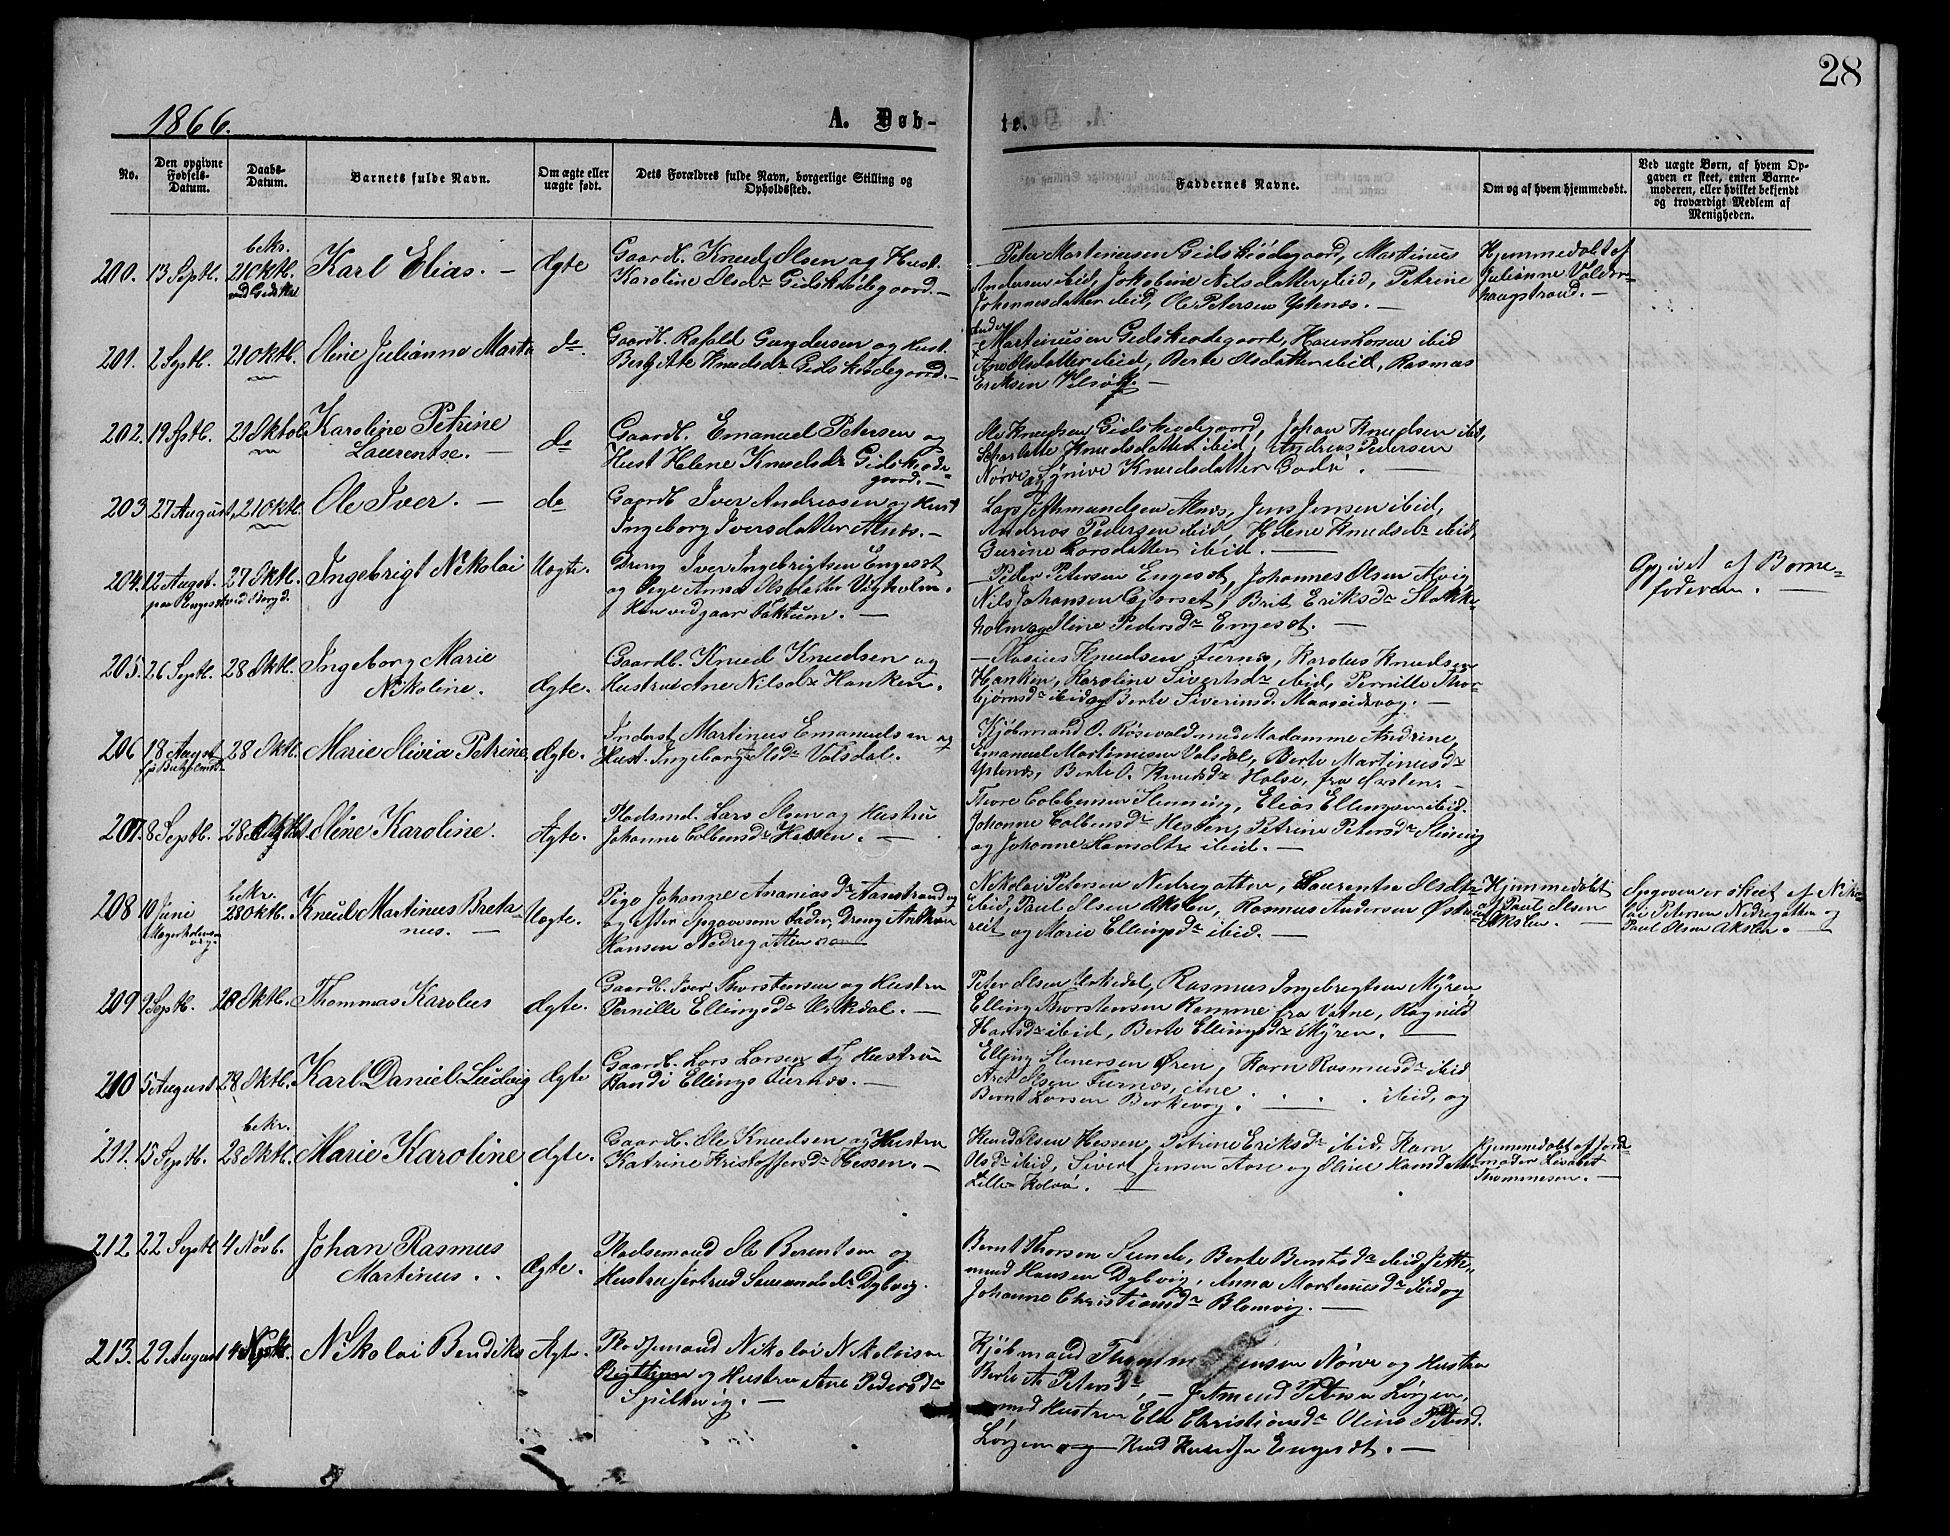 28
1866.
A. Døb-
te.
No.
Den opgivne Fødsels-Datum.
Daabs-Datum.
Barnets fulde Navn.
Om ægte eller uægte født.
Dets Forældres fulde Navn, borgerlige Stilling og Opholdssted.
Faddernes Navne.
Om og af hvem hjemmedøbt.
Ved uægte Børn, af hvem Opgaven er skeet, enten Barnemoderen, eller hvilket bekjendt og troværdigt Medlem af Menigheden.
bekr.
200. 13 Septb. 21 Oktb. Karl Elias. — Ægte
Gaardb. Knud Olsen og Hust.
Karoline Olsdr Gidskeødegaard. —
Peter Martinusen Gidskeødegaard, Martinus
Andersen ibid, Jakobine Nilsdatter ibid, Petrine
Johannesdatter ibid, Ole Petersen Ystenæs. —
Hjemmedøbt af
Julianne Valder-
haugstrand. —
201. 2 Septb. 21 Oktb. Oline Julianne Marta do.
Gaardb. Rafald Gundersen og Hust.
Bergitte Knudsdr Gidskeødegaard. —
Martinusen Gidskeødegaard, Hans Larsen ibid
Ane Olsdatter ibid, Berte Olsdatter ibid, Rasmas
Eriksen —
202. 19 Sptb. 21 Oktob. Karoline Petrine
Laurentse. — do
Gaardb. Emanuel Petersen og
Hust Helene Knudsdr Gidskeøde-
gaard. —
Ole Knudsen Gidskeødegaard, Johan Knudsen ibid,
Scharlotte Knudsdatter ibid, Andreas Pedersen
Nørve og Synive Knudsdatter Godø. —
203 27 August, 21 Oktb. Ole Iver. — do
Gaardb Iver Andreasen og Hust
Ingeborg Iversdatter Alnæs. —
Lars Jethmundsen Alnæs, Jens Jensen ibid,
Andreas Pedersen ibid, Helene Knudsdr ibid,
Gurine Larsdatter ibid. —
204. 12 Augst. 27 Oktb. Ingebrigt Nikolai Uægte.
paa Engeset ved Borgd.
Dreng Iver Ingebrigtsen Engeset
og Pige Anna Olsdatter Vegholm.
Han vedgaar Faktum. —
Peder Petersen Engeset, Johannes Olsen Alvig
Nils Johansen Gjerset, Brit Eriksdr Stokke-
holm og Oline Pedersdr Engeset. —
Opgivet af Barne-
faderen. —
205. 26 Septb. 28 Oktb. Ingeborg Marie
Nikoline. Ægte.
Gaardb. Knud Knudsen og
Hustru Ane Nilsdr Hanken.
Knudsen Furnæs, Karolus Knudsen
Hanken, Karoline Sivertsdr ibid, Pernille Thor-
bjørnsdr ibid og Berte Siverinsd. Maaseidvaag. —
206 18 Augst 28 Oktb. Marie Olivia Petrine Ægte.
Inderst Martinus Emanuelsen og
Hust. Ingeborg Olsdr Volsdal.
Kjøbmand O. Røsevold med Madamme Andrine,
Emanuel Martinusen Volsdal, Berte Martinusdr
Ystenæs, Berte O. Knudsdr Holse, fra Ørsten. —
207. 8 Septb. 28 Oktb. Oline Karoline. Ægte.
Pladsmd. Lars Olsen og Hustru
Johanne Colbensdr Hessen. —
Thore Colbensen Slinning, Elias Ellingsen ibid.
Johanne Colbensdr Hessen, Petrine Petersdr Slinning
og Johanne Hansdtr ibid. —
bekr.
208 10 Juni 28 Oktb. Knud Martinus Breta
nus. — Uægte.
Pige Johanne Ananiasdr Aarstrand
og efter Opgav som Fader, Dreng Anthon
Hansen Nedregotten
Nikolai Petersen Nedregotten, Laurentse Olsdtr
ibid, Paul Olsen Akslen, Rasmus Andersen Østrem
reit og Marie Ellingsdr ibid. —
Hjemmedøbt
af Paul Olsen
Akslen. —
Opgaven er skeet af Niko-
lai Petersen Nedregotten og
Paul Olsen Akslen. —
209 9 Septb. 28 Oktb. Thommas Karolus Ægte.
Gaardb. Iver Thorstensen og Hustru
Pernille Ellingsdr Urkedal. —
Peter Olsen Urkedal, Rasmus Ingebregtsen Myren
Elling Thorstensen Romme fra Vatne, Ragnild
Hansdr ibid, Berte Ellingsdr Myren. —
210 5 August 28 Oktb. Karl Daniel Ludvig Ægte
Gaardb. Lars Larsen og Hustru
Randi Ellings Furnæs. —
Elling Stenersen Øren, Karn Rasmusdr ibid
Aret Olsen Furnæs, Ane . . . ibid, og
Bernt Larsen Berkevaag.
bekr.
211. 15 Septb. 28 Oktb. Marie Karoline Ægte.
Gaardb. Ole Knudsen og Hustru
Katrine Kristoffersdr Hessen. —
Knud Olsen Hessen, Petrine Eriksdr ibid, Karn
Olsdr ibid, Sivert Jensen Aase og Oline Hansd
Lille-Kalvø. —
Hjemmedøbt af Jord-
moder
Thommesen. —
212. 22 Septb 4 Novb. Johan Rasmus
Martinus. Ægte.
Pladsemand Ole Berentsen og
Hustru Jertrud Samuelsdr Dybvig.
Bernt Thorsen Sunde, Berte Berntsdr ibid, Jette-
mund Hansen Dybvig, Anna Martinusdr ibid og
Johanne Christiansdr Blomvig. —
213. 29 August 4 Nikolai Bendiks Ægte.
Pladsemand Nikolai Nikolaisen
og Hustru Ane Pedersdr
Spilkevig. —
Kjøbmand Jensen Nørve og Hustru
Berte A. Petersdr, — Jetmund Petersen Lørgen,
med Hustru Else Christiansdr Oline Petersd.
Lørgen og Knud Knudsen Engeset. —